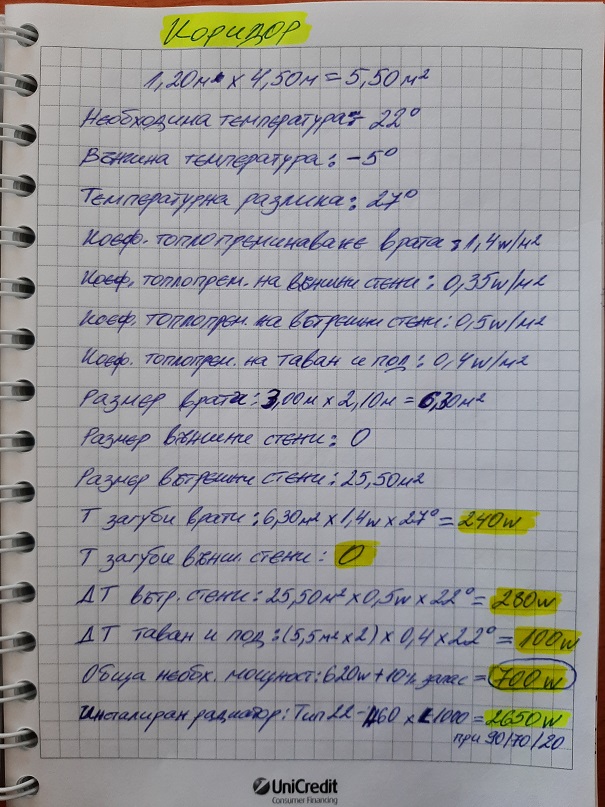 Коридор
1,20м x 4,50м = 5,50м²
Необходима температура: 22°
Външна температура: -5°
Температурна разлика: 27°
Коеф. топлопреминаване врата: 1,4w/м²
Коеф. топлопрем. на външни стени: 0,35w/м²
Коеф. топлопрен. на вътрешни стени: 0,5w/м²
Коеф. топлопрем. на таван и под: 0,4w/м²
Размер врати: 3,00м x 2,10м = 6,30м²
Размер външни стени: 0
Размер вътрешни стени: 25,50м²
Т загуби врати: 6,30м² x 1,4w x 27° = 240w
Т загуби външ. стени: 0
ΔТ вътр. стени: 25,50м² x 0,5w x 22° = 280w
ΔТ таван и под: (5,5м² x 2) x 0,4 x 22° = 100w
Обща необх. мощност: 620w + 10% запас = 700w
Инсталиран радиатор: Тип 22-H60 x L1000 = 2650w
при 90/70/20
UniCredit
Consumer Financing